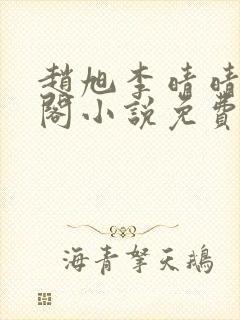 趙旭李晴晴
閣小說免費
海青拏天鵝